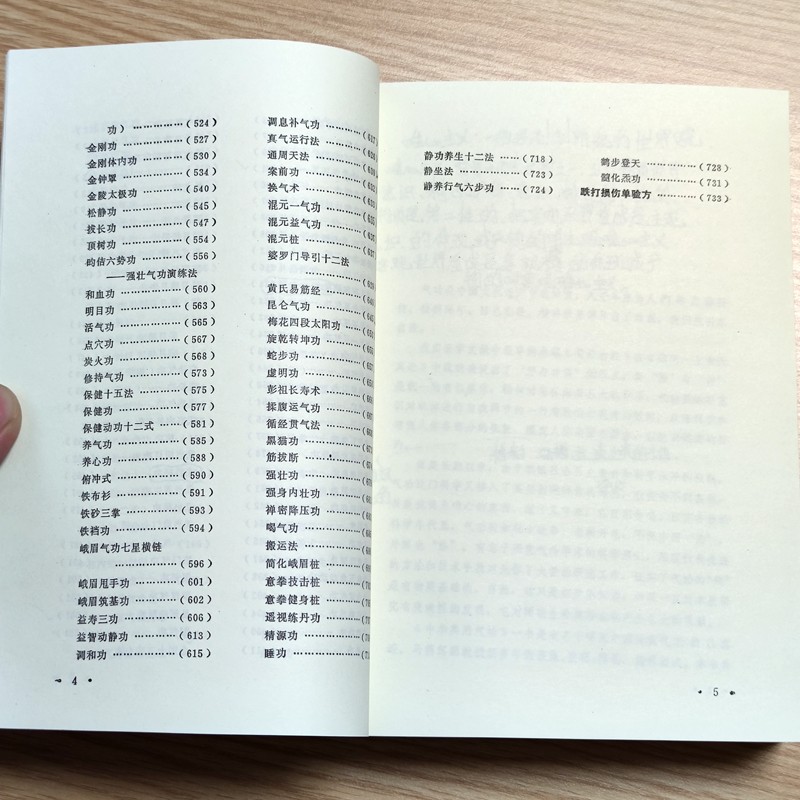 功）……………(524)
金刚功……………(527)
金刚体内功………(530)
金钟罩……………(534)
金陵太极功………(540)
松静功……………(545)
拔长功……………(547)
顶树功……………(554)
六势功………(556)
——强壮气功演练法
和血功……………(560)
明目功……………(563)
活气功……………(565)
点穴功……………(567)
炭火功……………(568)
修持气功…………(573)
保健十五法………(575)
保健功……………(577)
保健动功十二式…(581)
养气功……………(585)
养心功……………(588)
俯冲式……………(590)
铁布衫……………(591)
铁砂三掌…………(593)
铁裆功……………(594)
峨眉气功七星横链
……………(596)
峨眉甩手功………(601)
峨眉筑基功………(602)
益寿三功…………(606)
益智动静功………(613)
调和功……………(615)
调息补气功…………
真气运行法…………
通周天法……………
案前功………………
换气术………………
混元一气功…………
混元益气功…………
混元桩………………
婆罗门导引十二法
………………
黄氏易筋经…………
昆仑气功……………
梅花四段太阳功……
旋乾转坤功…………
蛇步功………………
虚明功………………
彭祖长寿术…………
揉腹运气功…………
循经贯气法…………
黑猫功………………
筋拔断………………
强壮功………………
强身内壮功…………
禅密降压功…………
喝气功………………
搬运法………………
简化峨眉桩…………
意拳技击桩…………
意拳健身桩…………
遥视练丹功…………
精源功………………
睡功…………………
4
静功养生十二法……(718)
静坐法………………(723)
静养行气六步功……(724)
鹤步登天……………(728)
化炁功……………(731)
跌打损伤单验方……(733)
5